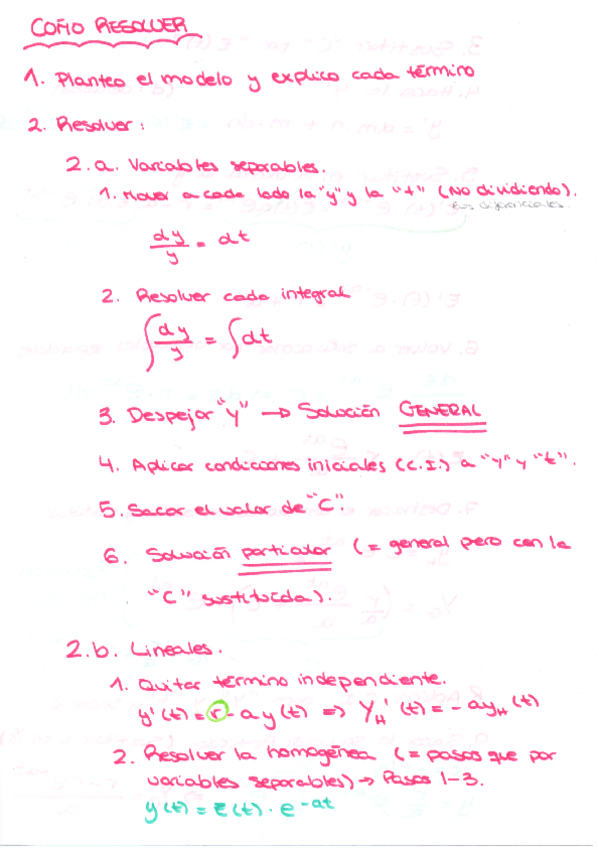 COMO RESOLVER
1. Planteo el modelo y explico cada término
2. Resolver:
2.a. Variables separables.
1. Mover a cada lado la "y" y la "t" (No dividiendo).
los diferenciales
dy/y = dt
2. Resolver cada integral
∫dy/y = ∫dt
3. Despejar "y" → Solución GENERAL
4. Aplicar condiciones iniciales (C.I.) a "y" y "t".
5. Sacar el valor de "C".
6. Solución particular (= general pero con la
"C" sustituida).
2.b. Lineales.
1. Quitar término independiente.
y'(t) = r - ay(t) ⇒ Y_H'(t) = - ay_H(t)
2. Resolver la homogénea (= pasos que por
variables separables) → Pasos 1-3.
y(t) = C(t) · e^-at